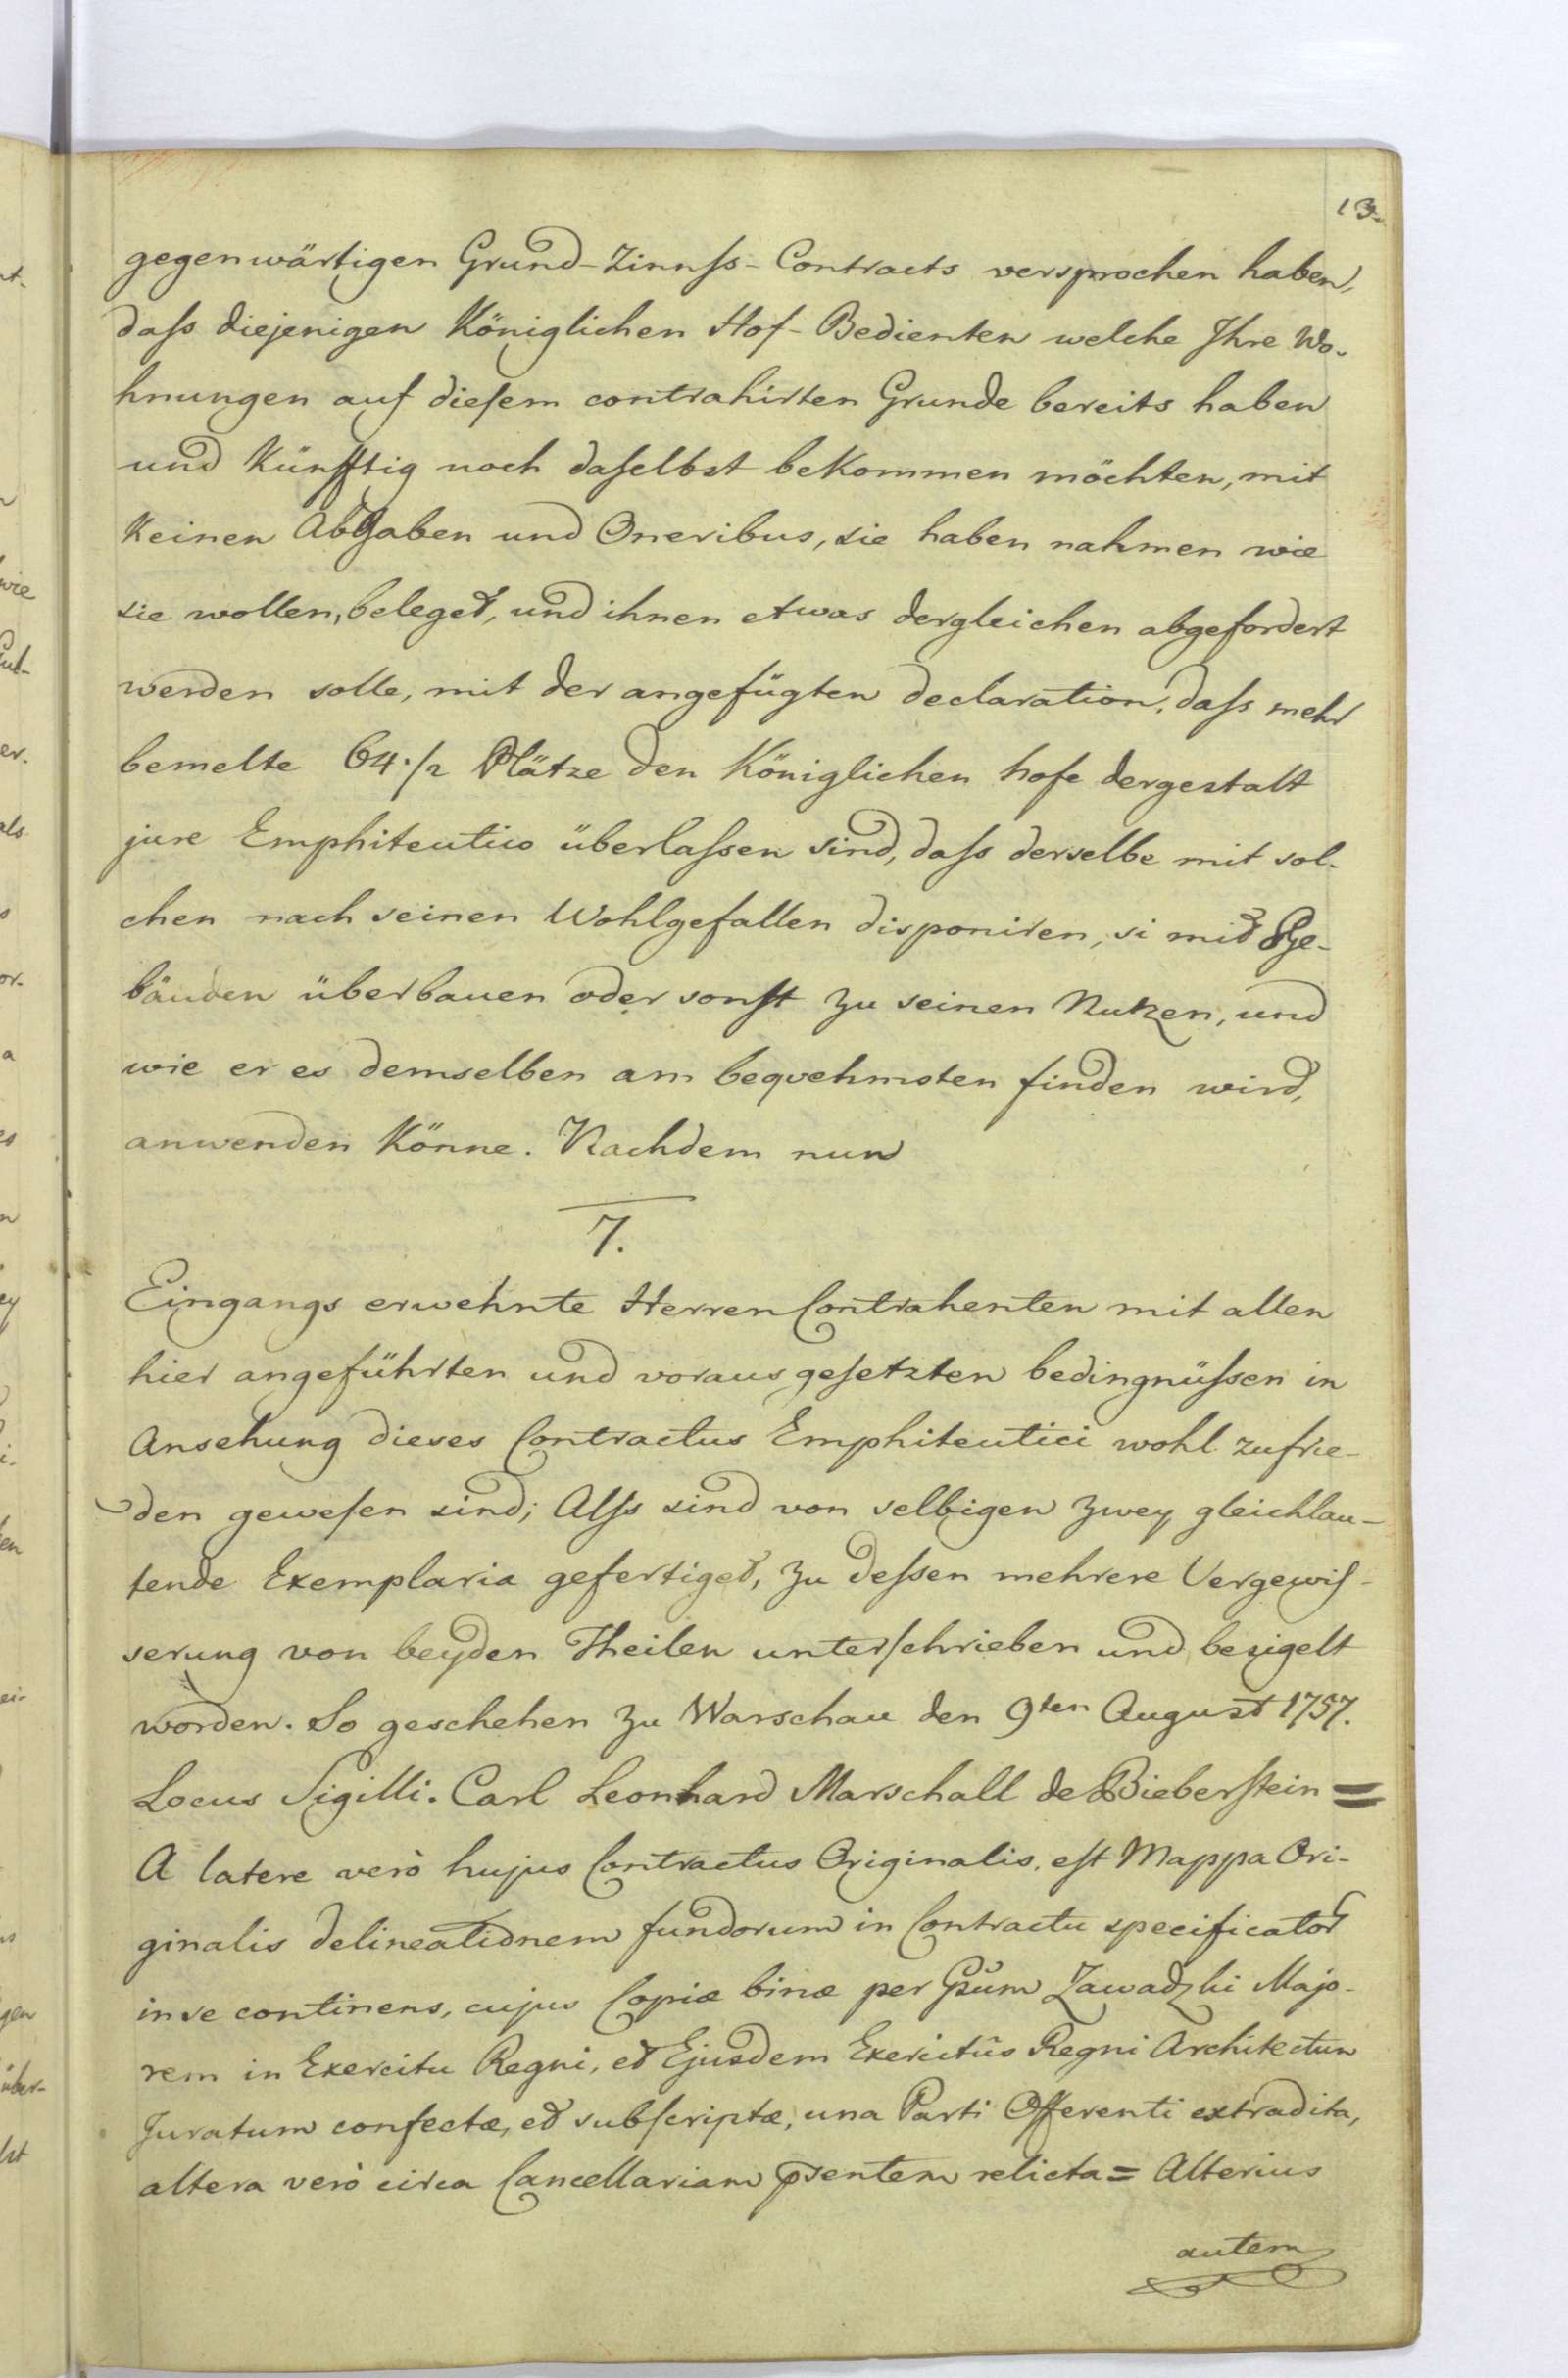 13.
gegenwärtigen Grund-Zinnſs-Contracts versprochen haben,
daſs diejenigen Königlichen Hof-Bedienten welche Ihre Wo-
hnungen auf dieſem contrahirten Grunde bereits haben
und Künfftig noch daſelbst beKommen möchten, mit
Keinen Abgaben und Oneribus, sie haben nahmen wie
sie wollen, beleget, und ihnen etwas dergleichen abgefordert
werden solle, mit der angefügten declaration, daſs mehr
bemelte 64 1/2 Plätze den Königlichen hofe dergestalt
jure Emphiteutico überlaſsen sind, daſs derselbe mit sol-
chen nach seinen Wohlgefallen disponiren, si mit Ge-
bäuden überbauen oder sonſt zu seinen Nutzen, und
wie er es demselben am beqvehmsten finden wird,
anwenden Könne. Nachdem nun
7.
Eingangs erwehnte Herren Contrahenten mit allen
hier angeführten und voraus geſetzten bedingnüſsen in
Ansehung dieses Contractus Emphiteutici wohl zufrie-
den geweſen sind; Alſs sind von selbigen zwey gleichlau-
tende Exemplaria gefertiget, zu deſsen mehrere Vergewiſ-
serung von beyden Theilen unterſchrieben und besigelt
worden. So geschehen zu Warschau den 9ten August 1757.
Locus Sigilli. Carl Leonhard Marschall de Bieberſtein =
A latere verò hujus Contractus Originalis, eſt Mappa Ori-
ginalis delineationem fundorum in Contractu specificator
in se continens, cujus Copiæ binæ per Gsum Zawadzki Majo-
rem in Exercitu Regni, et Ejusdem Exercitûs Regni Architectum
Juratum confectæ, et subſcriptæ, una Parti Offerenti extradita,
altera verò circa Cancellariam psentem relicta = Alterius
autem